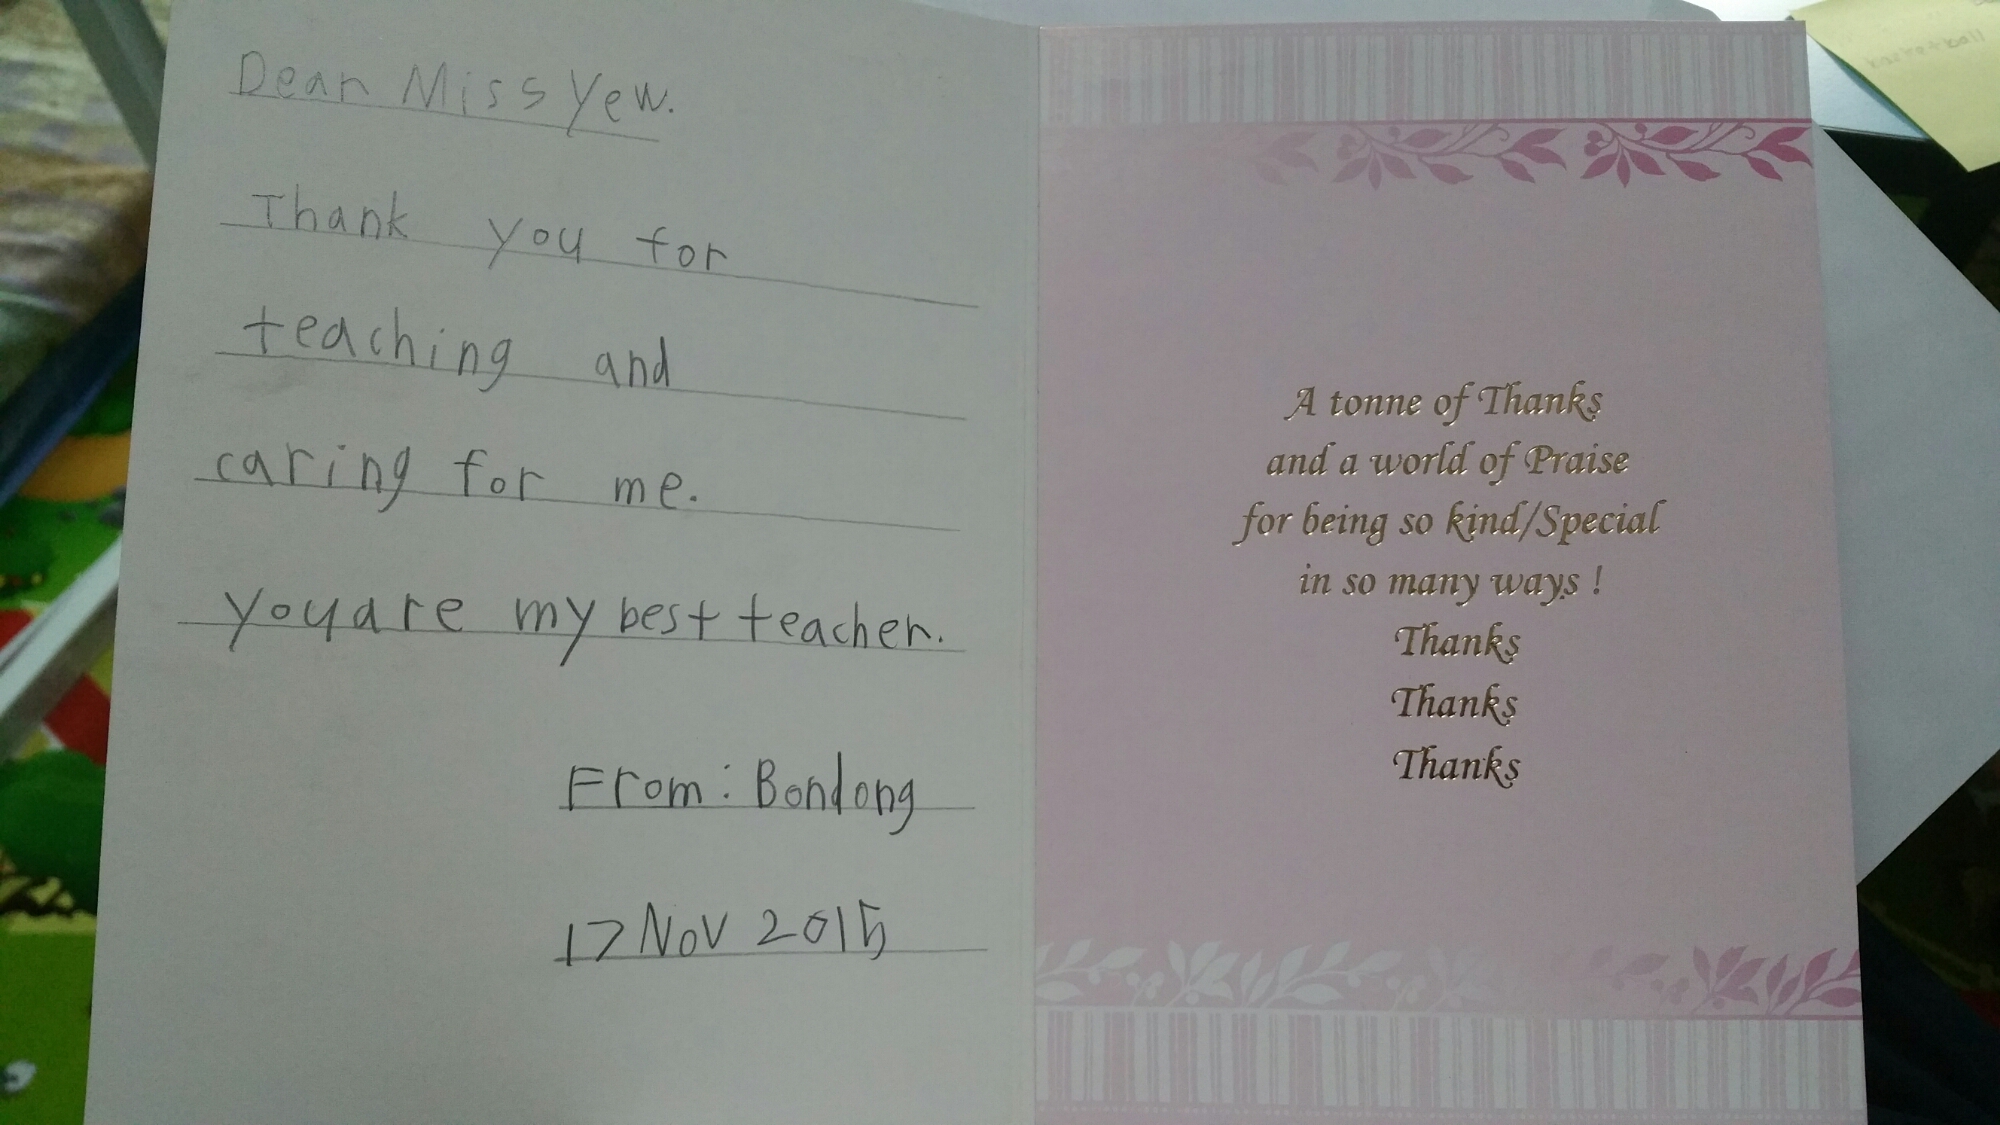 Dear Miss Yew.
Thank you for
teaching and
caring for me.
you are my best teacher.
From: Bondong
17 Nov 2015
A tonne of Thanks
and a world of Praise
for being so kind/Special
in so many ways !
Thanks
Thanks
Thanks